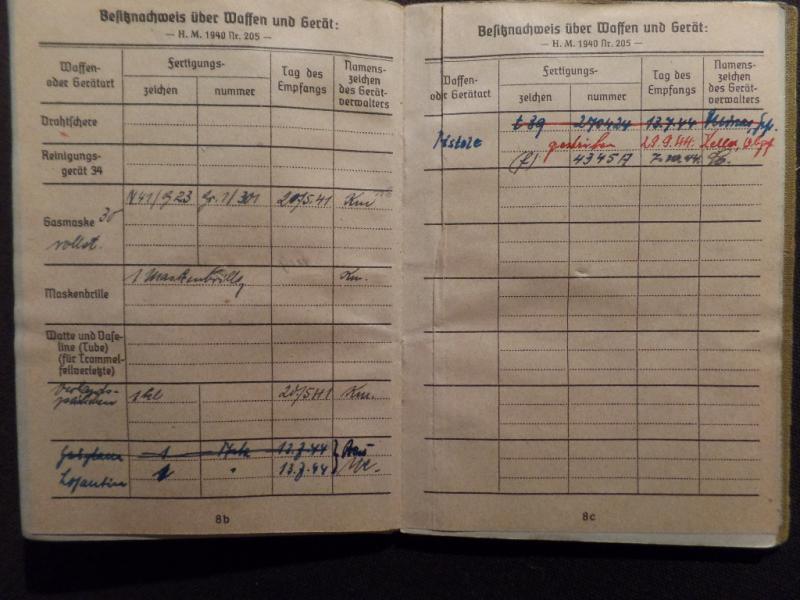 Besitznachweis über Waffen und Gerät:
— H. M. 1940 Nr. 205 —
Waffen-
oder Gerätart
Fertigungs-
zeichen
nummer
Tag des
Empfangs
Namens-
zeichen
des Gerät-
verwalters
Drahtschere
Reinigungs-
gerät 34
Gasmaske 30
vollst.
N41/G23 Gr. 1/301 20/5.41 Km
Maskenbrille
1 Maskenbrille Km.
Watte und Vase-
line (Tube)
(für Trommel-
fellverletzte)
20/5 41 Km.
1 13.7.44
Losantin 1 " 13.7.44
8b
Besitznachweis über Waffen und Gerät:
— H. M. 1940 Nr. 205 —
Waffen-
oder Gerätart
Fertigungs-
zeichen
nummer
Tag des
Empfangs
Namens-
zeichen
des Gerät-
verwalters
Pistole
270424 13.7.44
gestrichen 29.9.44.
(f) 4345A
8c